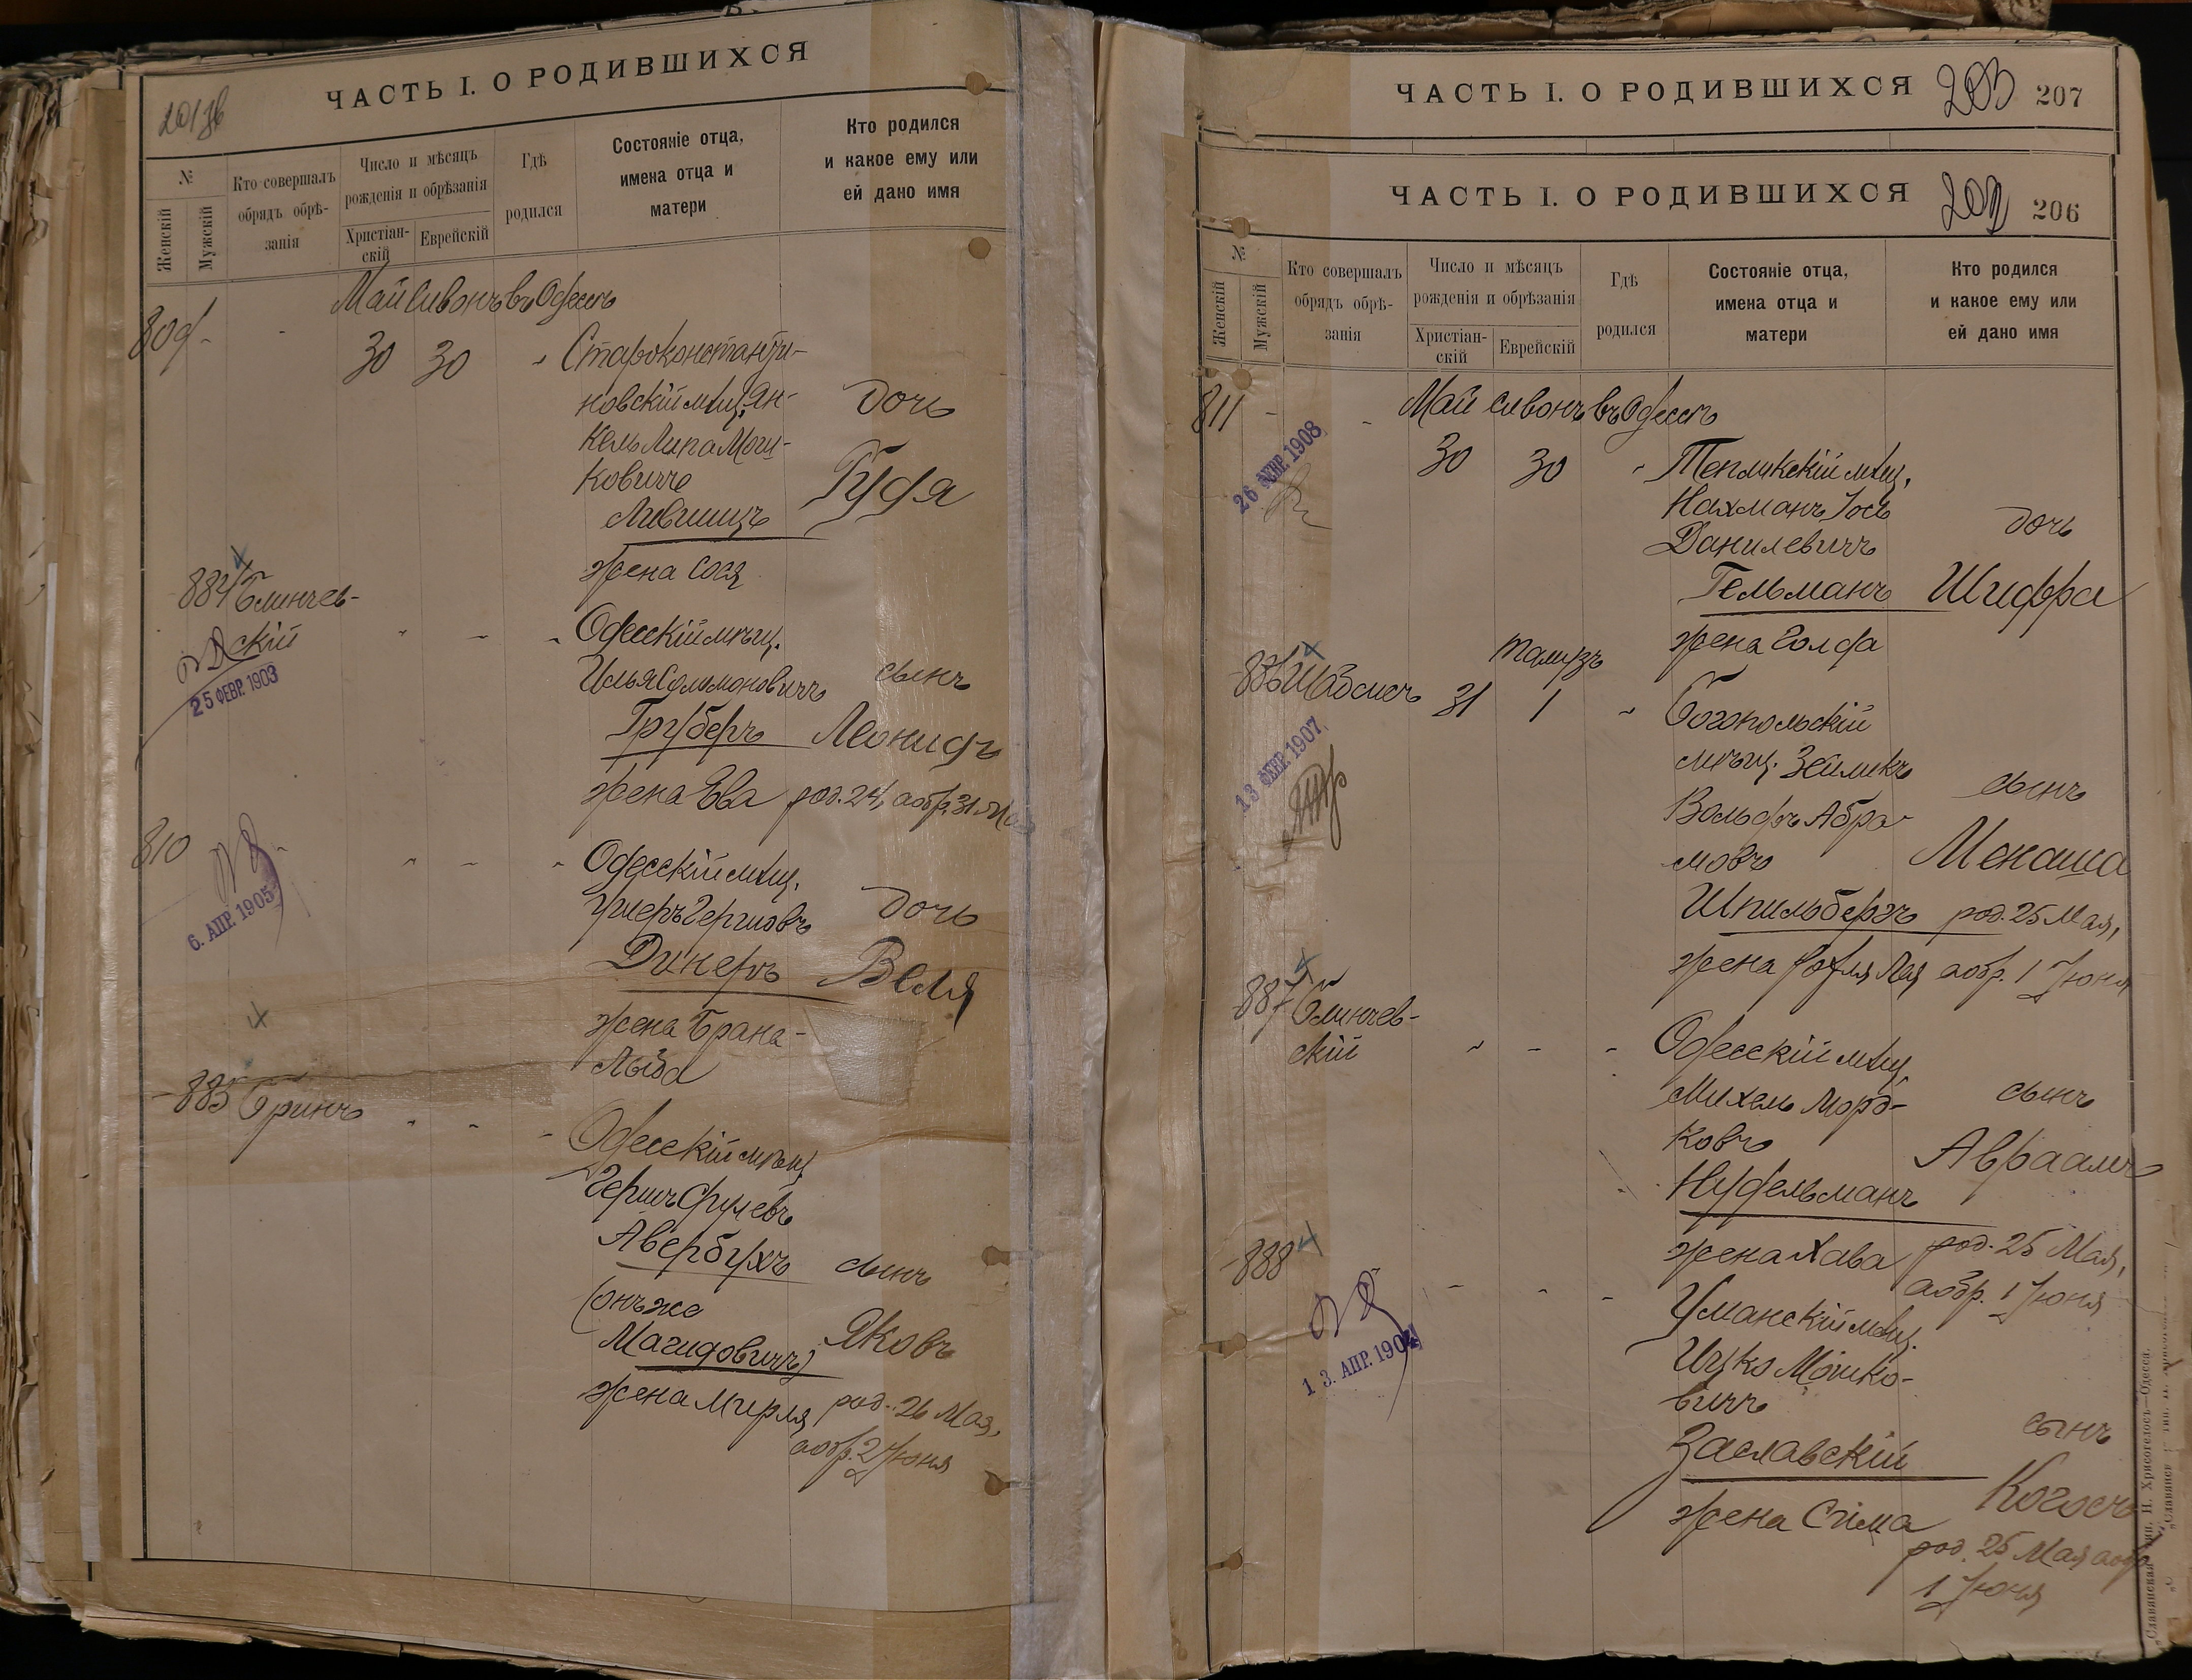 ЧАСТЬ I. О РОДИВШИХСЯ
№
Женскій
Мужскій
Кто совершалъ
обрядъ обрѣ-
занія
Число и мѣсяцъ
рожденія и обрѣзанія
Христіан-
скій
Еврейскій
Гдѣ
родился
Состояніе отца,
имена отца и
матери
Кто родился
и какое ему или
ей дано имя
Май Сивонъ въ Одессѣ
809 - - 30 30 " Староконстанти-
новскій мѣщ. Ян-
кель Липа Мош-
ковичъ
Лившицъ
жена Сося
дочь
884 Блинчев-
скій
25 ФЕВР. 1903
Одесскій мѣщ.
Илья Соломоновичъ
Груберъ
жена Ева
сынъ
Леонидъ
род. 24, а обр. 31 Мая
810
6. АПР. 1905
Одесскій мѣщ.
Ушеръ Гершовъ
Динеръ
жена Брана-
Лыба
дочь
Веля
885 Гринъ
Одесскій мѣщ.
Гершъ Срулевъ
Авербухъ
(онъ же
Магидовичъ)
жена Мирля
сынъ
Яковъ
род. 26 Мая,
а обр. 2 Іюня
ЧАСТЬ I. О РОДИВШИХСЯ 203 207
ЧАСТЬ I. О РОДИВШИХСЯ 202 206
№
Женскій
Мужскій
Кто совершалъ
обрядъ обрѣ-
занія
Число и мѣсяцъ
рожденія и обрѣзанія
Христіан-
скій
Еврейскій
Гдѣ
родился
Состояніе отца,
имена отца и
матери
Кто родился
и какое ему или
ей дано имя
Май Сивонъ въ Одессѣ
811 - - 30 30 " Тепликскій мѣщ.
Нахманъ Іось
Данилевичъ
Гельманъ
жена Голда
дочь
Шифра
1908
886 Шабсисъ 31
Тамузъ
1
13 ФЕВР. 1907
Богопольскій
мѣщ. Зейликъ
Вольфъ Абра-
мовъ
Шпильбергъ
сынъ
Менаша
род. 25 Мая,
а обр. 1 Іюня
887 Блинчев-
скій
Одесскій мѣщ.
Михель Морд-
ковъ
Нудельманъ
жена Хава
сынъ
Авраамъ
род. 25 Мая,
а обр. 1 Іюня
888
13. АПР. 1904
Уманскій мѣщ.
Ицко Мошко-
вичъ
Заславскій
жена Сима
сынъ
Когосъ
род. 25 Мая а обр.
1 Іюня